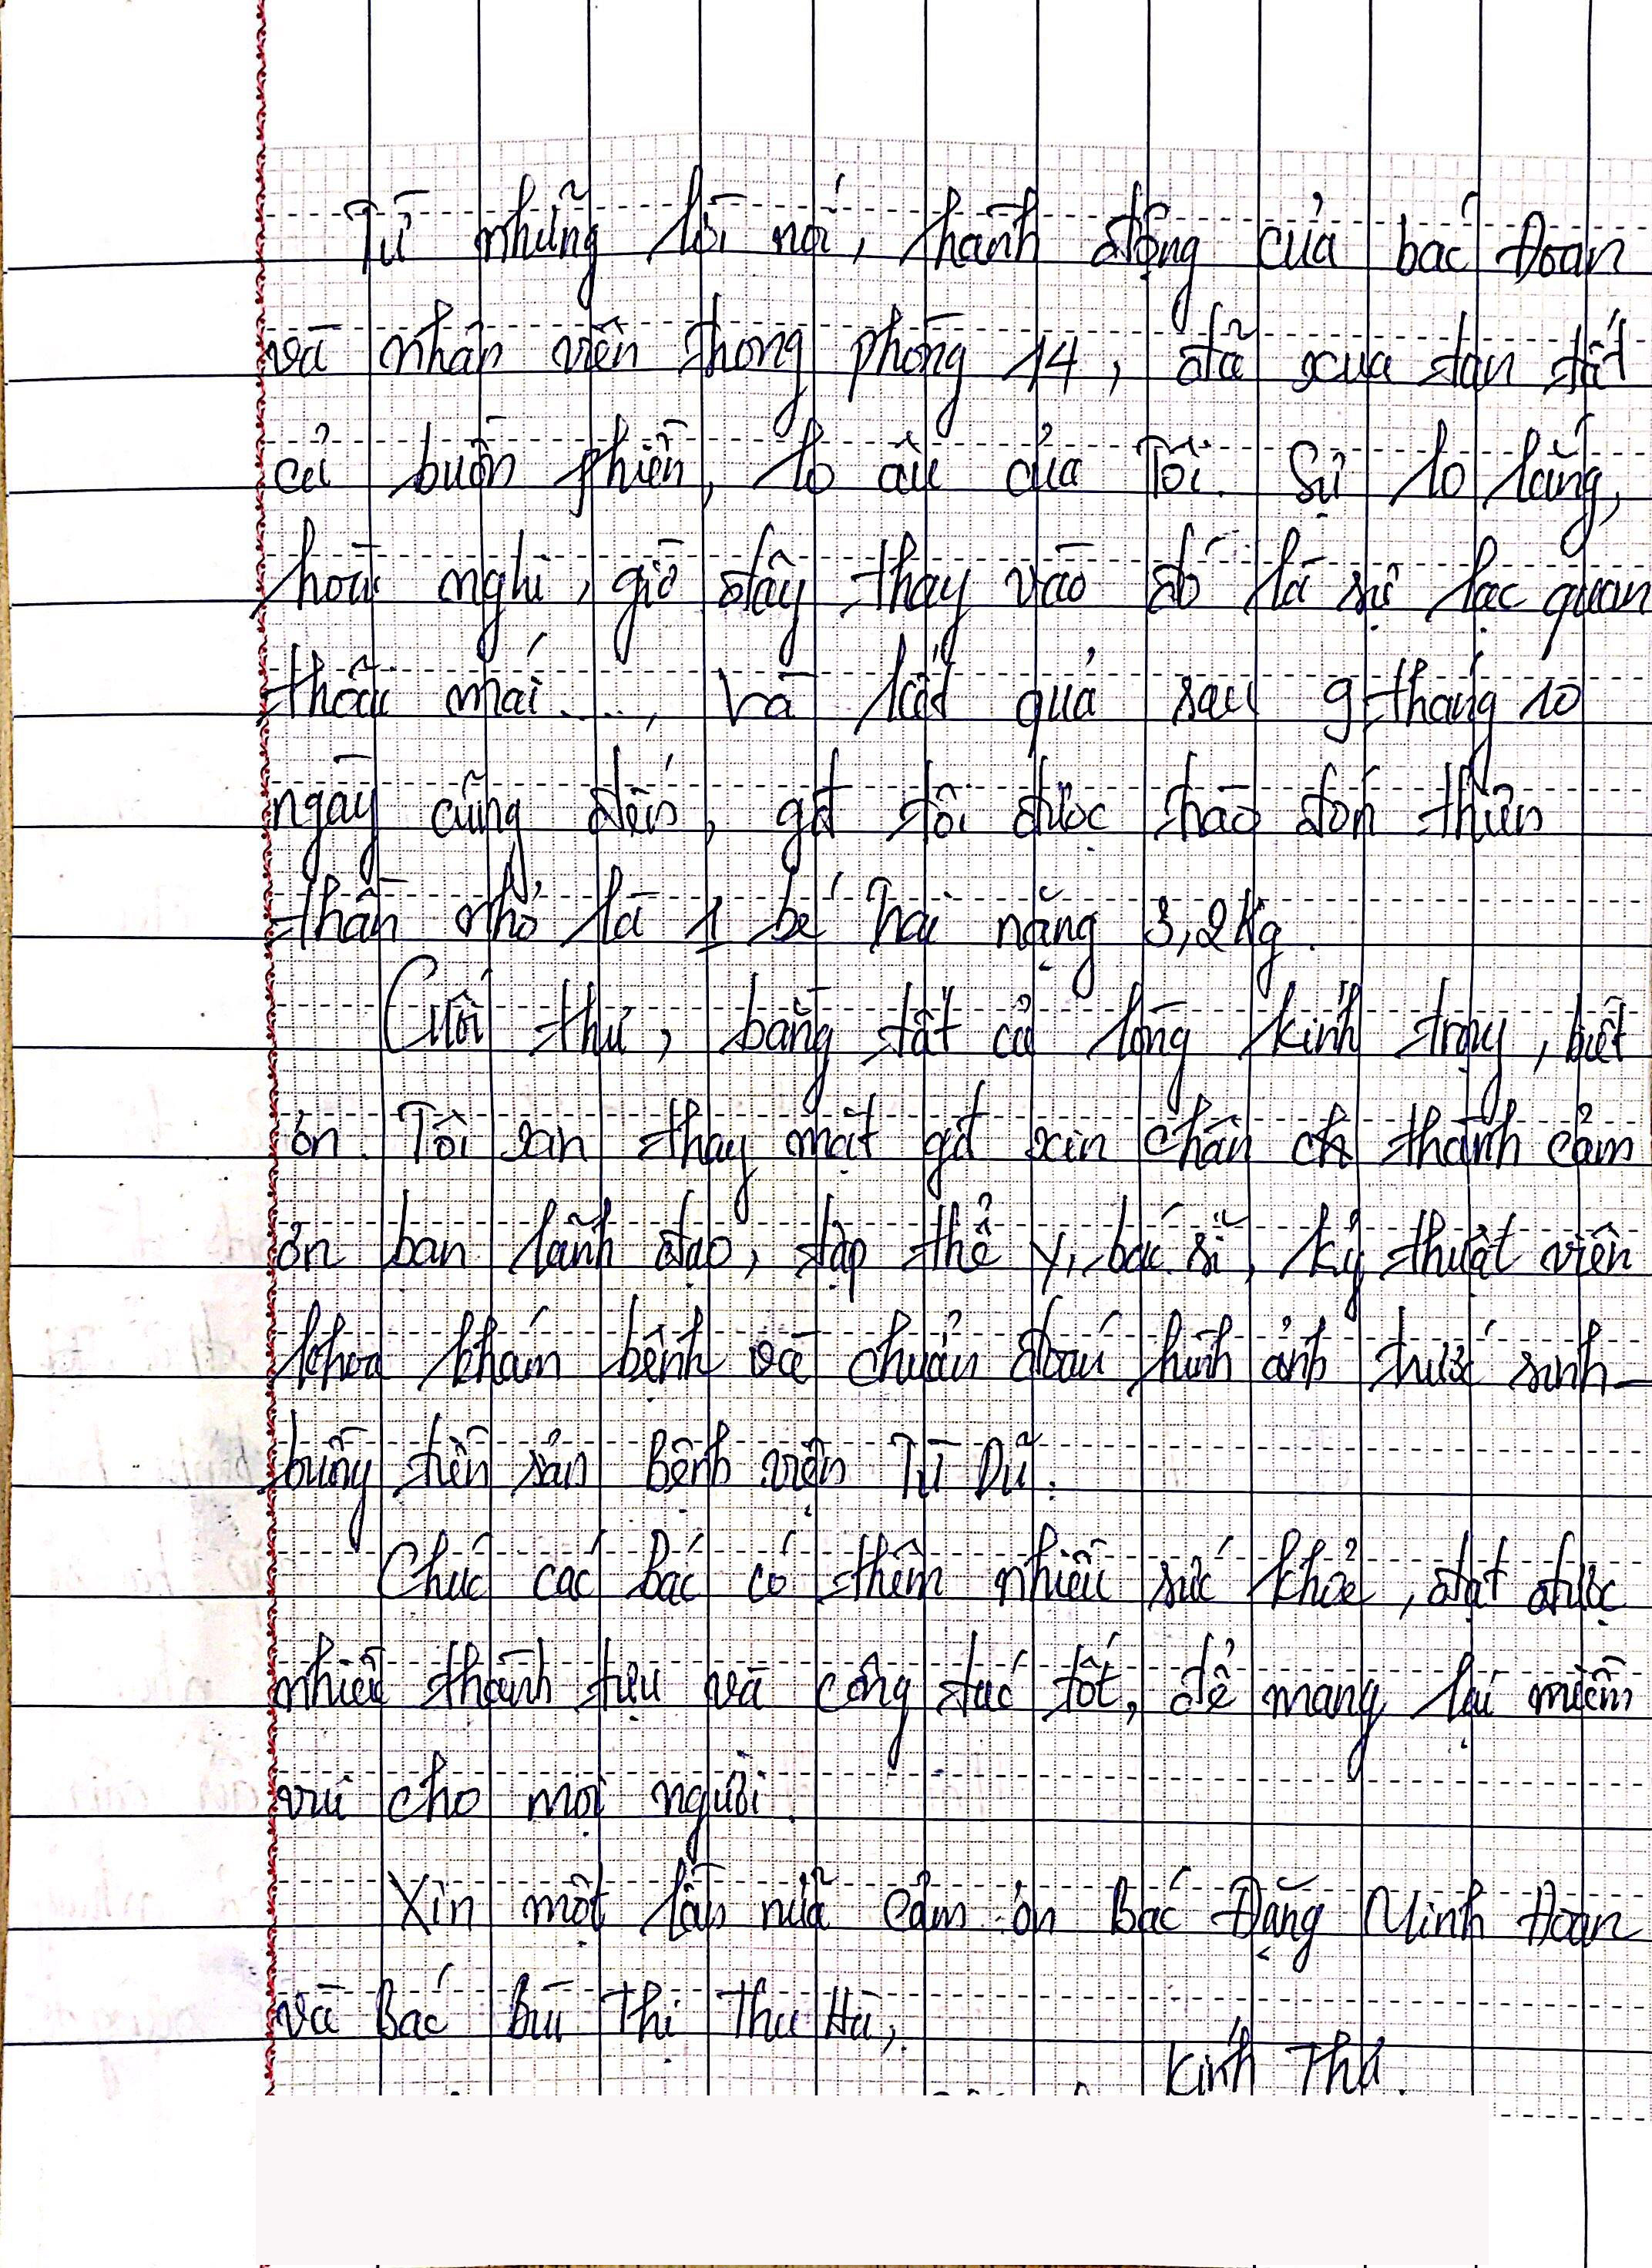 Từ những lời nói, hành động của bác Đoan
và nhân viên trong phòng 14, đã xua tan tất
cả buồn phiền, lo âu của Tôi. Sự lo lắng,
hoài nghi, giờ đây thay vào đó là sự lạc quan
thoải mái...., và kết quả sau 9 tháng 10
ngày cũng đến, gđ tôi được chào đón thiên
thần nhỏ là 1 bé trai nặng 3,2kg.
Cuối thư, bằng tất cả lòng kính trọng, biết
ơn. Tôi xin thay mặt gđ xin chân thành cảm
ơn ban lãnh đạo, tập thể y, bác sĩ, kỹ thuật viên
khoa khám bệnh và chuẩn đoán hình ảnh trước sinh -
buồng tiền sản Bệnh viện Từ Dũ.
Chúc các bác có thêm nhiều sức khỏe, đạt được
nhiều thành tựu và công tác tốt, để mang lại niềm
vui cho mọi người.
Xin một lần nữa cảm ơn Bác Đặng Minh Đoan
và Bác Bùi Thị Thu Hà,
Kính Thư.